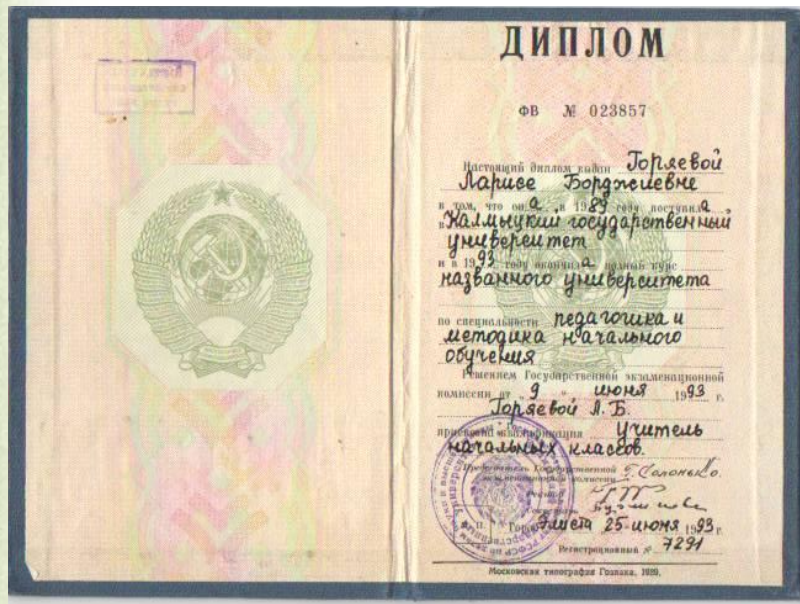 ДИПЛОМ
ФВ № 023857
Настоящий диплом выдан Горяевой
Ларисе Борджиевне
в том, что она в 1989 году поступила
в Калмыцкий государственный
университет
и в 1993 году окончила полный курс
названного университета
по специальности педагогика и
методика начального
обучения
Решением Государственной экзаменационной
комиссии от „ 9 “ июня 1993 г.
Горяевой Л. Б.
присвоена квалификация учитель
начальных классов.
Председатель Государственной
экзаменационной комиссии
Ректор
Секретарь
М. П. Город Элиста 25 июня 1993 г.
Регистрационный № 7291
Московская типография Гознака,